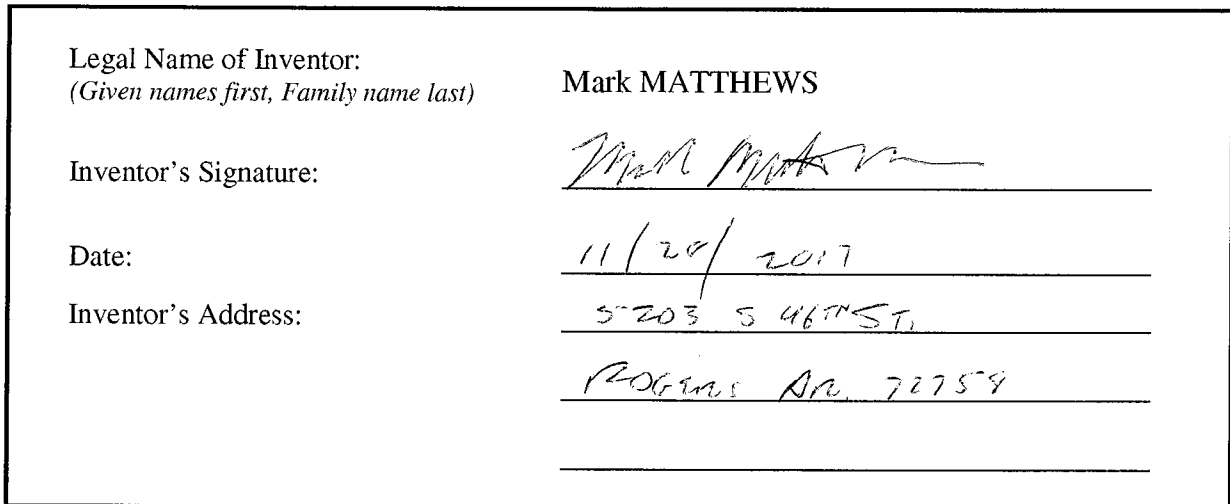 Legal Name of Inventor:
(Given names first, Family name last)
Mark MATTHEWS
Inventor's Signature:
Date:
11/28/2017
Inventor's Address:
5203 S 46TH ST.
ROGERS AR. 72758